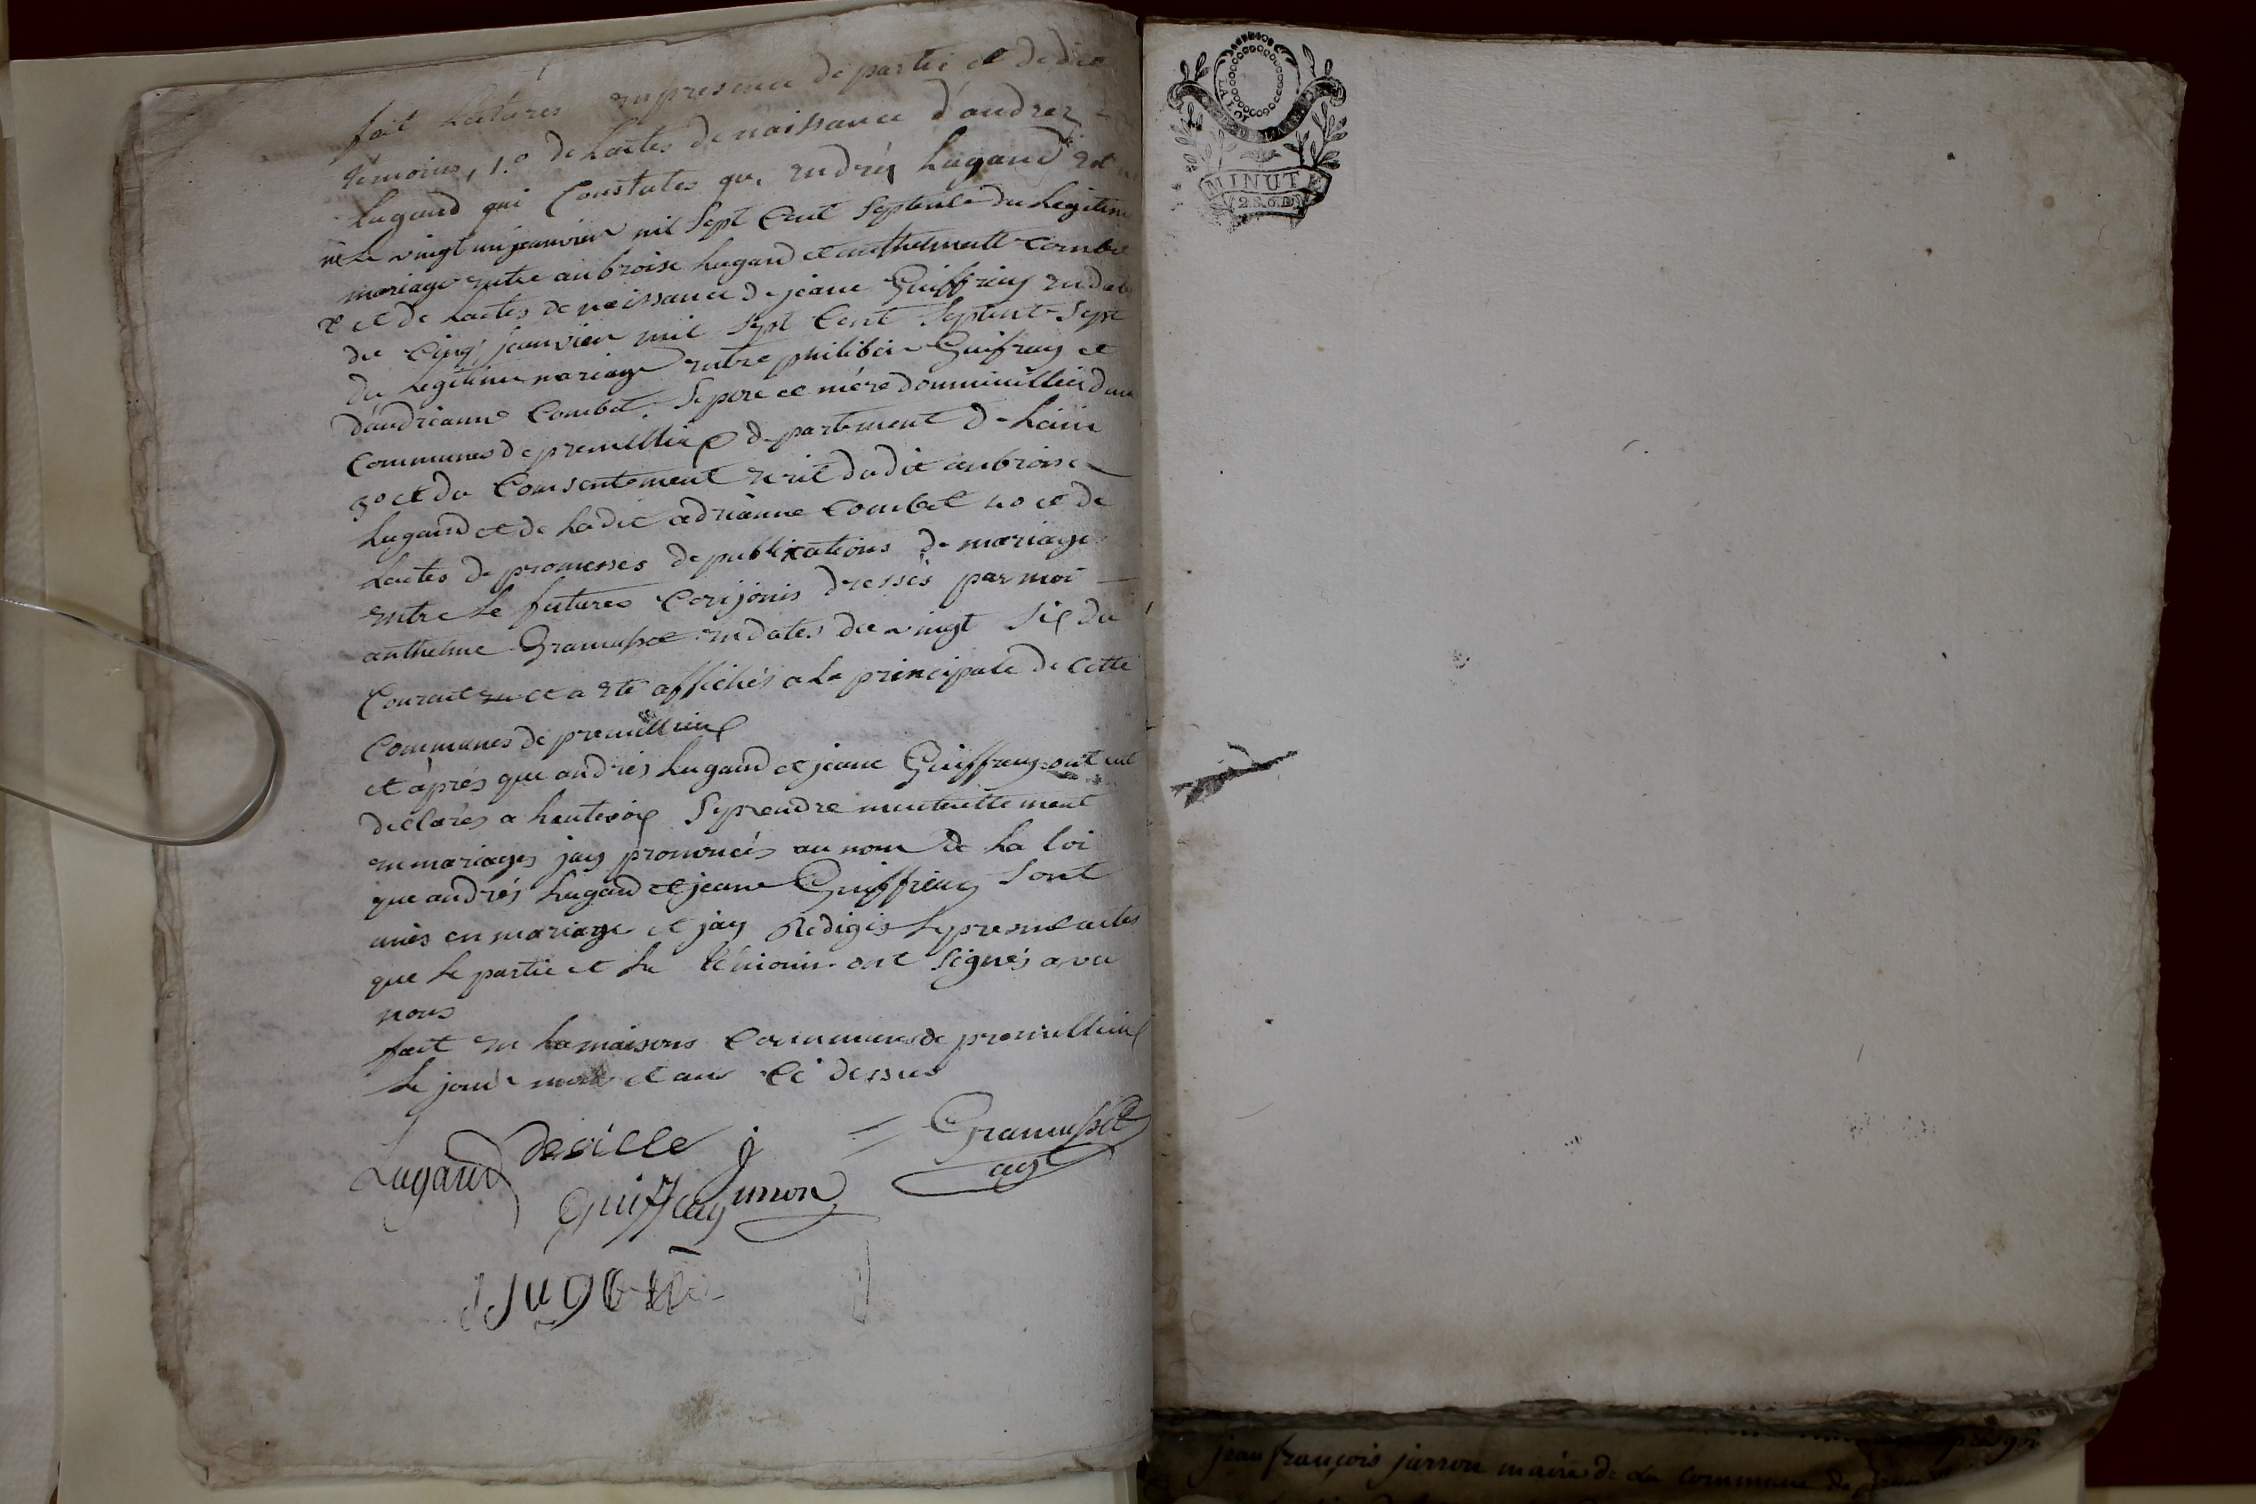 fait lectures en presence de partie et de dit
témoins, 1.º de lactes de naissance d'andrez
Lugand qui Constates que andréz Lugand est
né le vingt un jeanvier mil Sept Cent Septente du legitim
mariage entre anbroise Lugand et anthelmett Combet
2º et de lactes de naissance de jeane Guiffrey en date
du Cinq jeanvier mil sept Cent Septent Sept
du Legitime mariage entre philiber Guifray et
dandrianne Combet. Se pere et mére dommicilliez dans
Communes de premillieux departement de Lain
3º et du Consentement ecrit dudit anbroise
Lugand et de Ladit adrianne Combet 4º et de
Lactes de promesses de publixations de mariages
entre le futures Conjonis dressés par moi
anthelme Gramusset en dates du vingt Six du
Courant et a ete affichés a la principale de Cette
Communes de premillieux
et aprés que andrés Lugand et jeane Guiffrey ont eut
déclarés a hautevoix Se prendre mentuellement
en mariages jay prononcés au nom de la loi
que andrés Lugand et jeane Guiffrey Sont
uniés en mariage et jay Redigés le present actes
que le partie et le témoin ont Signés avec
nous
fait en la maisons Communes de premillieux
le jour mois et an Ci dessus
Lugand deville j Gramusset
Guiffray unon agt
Lugand
MINUTE
jean françois jarron maire de la commune de